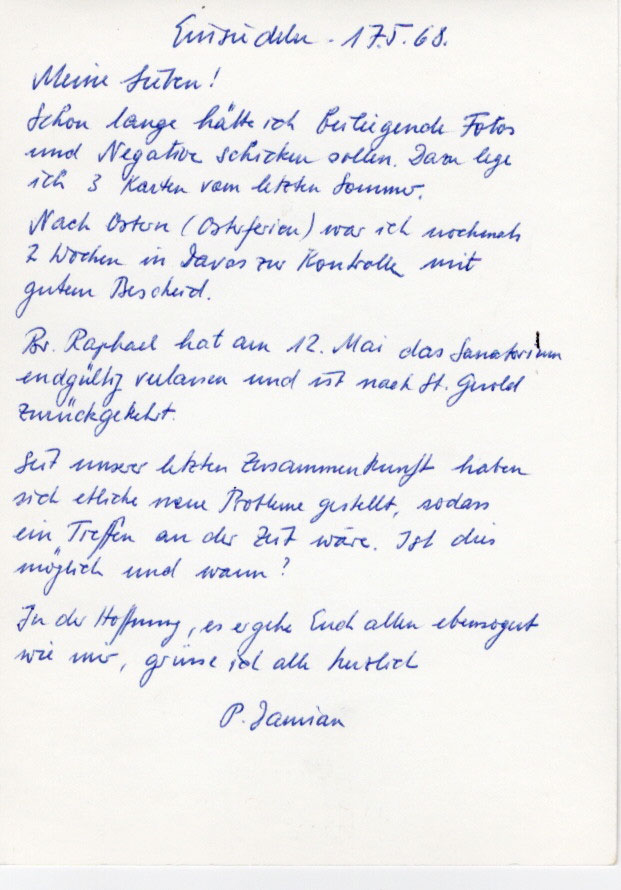 Einsiedeln - 17.V.68.
Meine Lieben!
Schon lange hätte ich beiliegende Fotos
und Negative schicken sollen. Dazu lege
ich 3 Karten vom letzten Sommer.
Nach Ostern (Osterferien) war ich nochmals
2 Wochen in Davos zur Kontrolle mit
gutem Bescheid.
Br. Raphael hat am 12. Mai das Sanatorium
endgültig verlassen und ist nach St. Gerold
zurückgekehrt.
Seit unserer letzten Zusammenkunft haben
sich etliche neue Probleme gestellt, sodass
ein Treffen an der Zeit wäre. Ist dies
möglich und wann?
In der Hoffnung, es ergehe Euch allen ebensogut
wie mir, grüsse ich alle herzlich
P. Damian